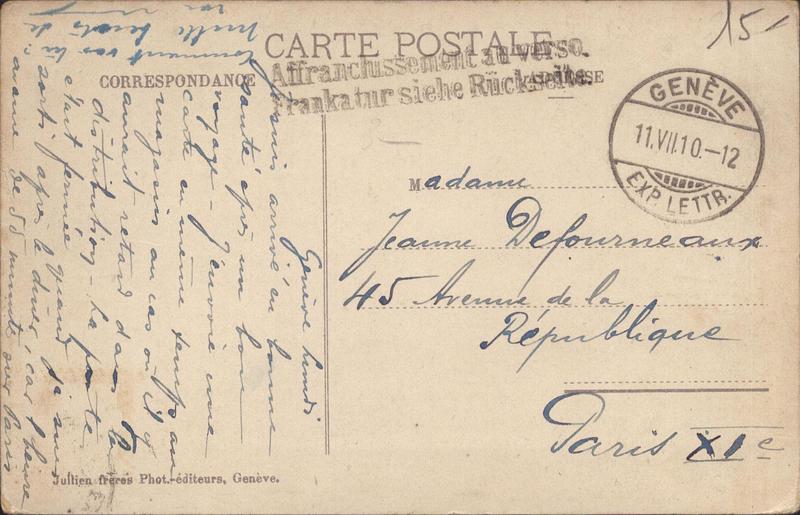 15
CARTE POSTALE
Affranchissement au verso.
Frankatur siehe Rückseite.
CORRESPONDANCE
GENÈVE
11.VII.10.–12
EXP. LETTR.
Madame
Jeanne Defourneaux
45 Avenue de la
République
Paris XIe
Genève lundi
Je suis arrivé en bonne
santé après un bon
voyage – J'envoie une
carte en même temps au
magasin au cas où il y
aurait retard dans la
distribution – La poste
était fermée quand je suis
sorti après le dîner, car l'heure
avance de 55 minutes sur Paris
comment vas tu
mille baisers de
Jullien frères Phot.-éditeurs, Genève.